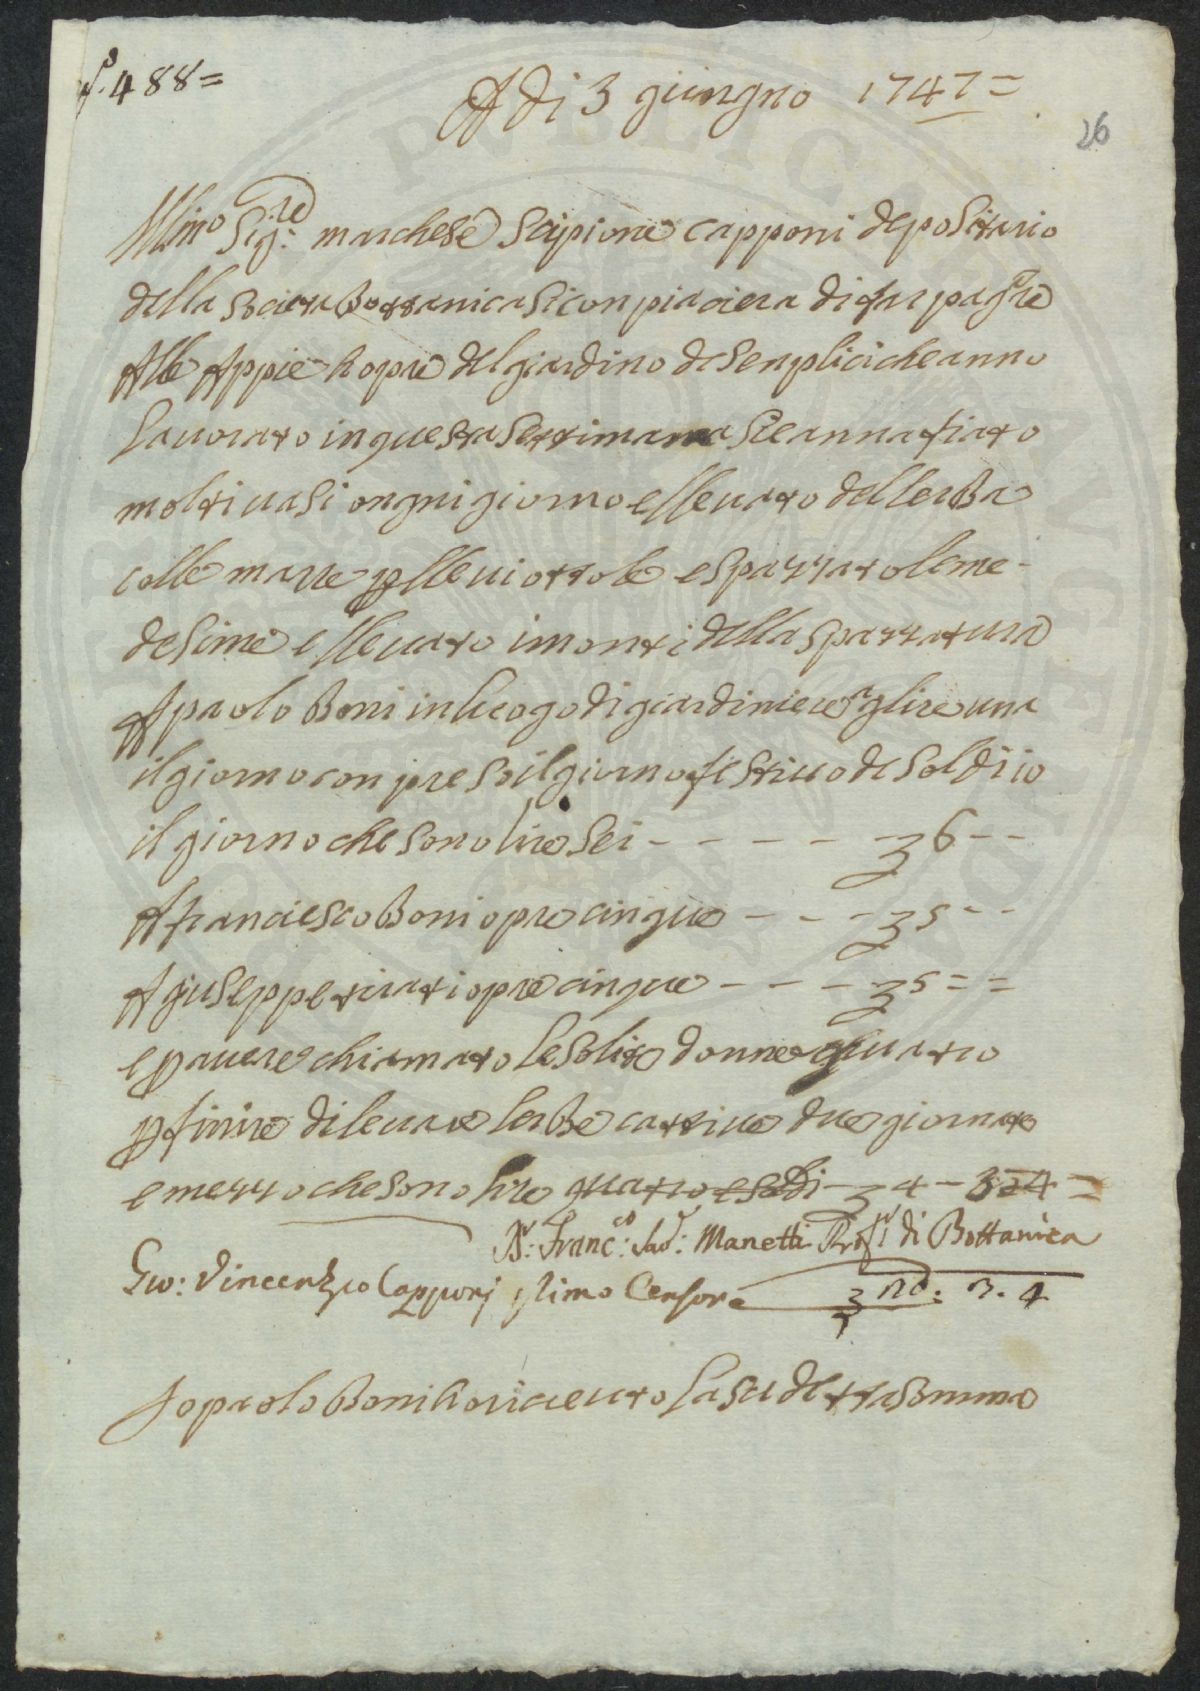 f. 488=
A di 3 giungno 1747=
26
Illmo Sigre: marchese Scipione capponi depositario
della Sociera Bottanica si conpiaciera di far pagre
Alle Appie hopre del giardino de senplici che anno
lauorato in questa settimana sie annafiato
molti uasi ongni giorno e lleuato dellerba
colle marre p lle uiottole e spazzato le me-
desime e lleuato i monti della spazzatura
A paolo Boni in luogo di giardiniere p lire una
il giorno conpreso il giorno festiuo de soldi 10
il giorno che sono lire sei - - - - - 6 - -
A franciesco Boni opre cinque - - - 5 - -
A giuseppe tirati opre cinque - - - 5 = =
e p auere chiamato le solite donne quatro
p finire di leuare lerbe cattiue due giornate
e mezzo che sono lire quatro e soldi - 4 -
Dr: Francco: Savr: Manetti Profr di Bottanica
Gio: Vincenzio Capponj Primo Censore
no. 3. 4
Io paolo Boni ho riceuto la su detta somma